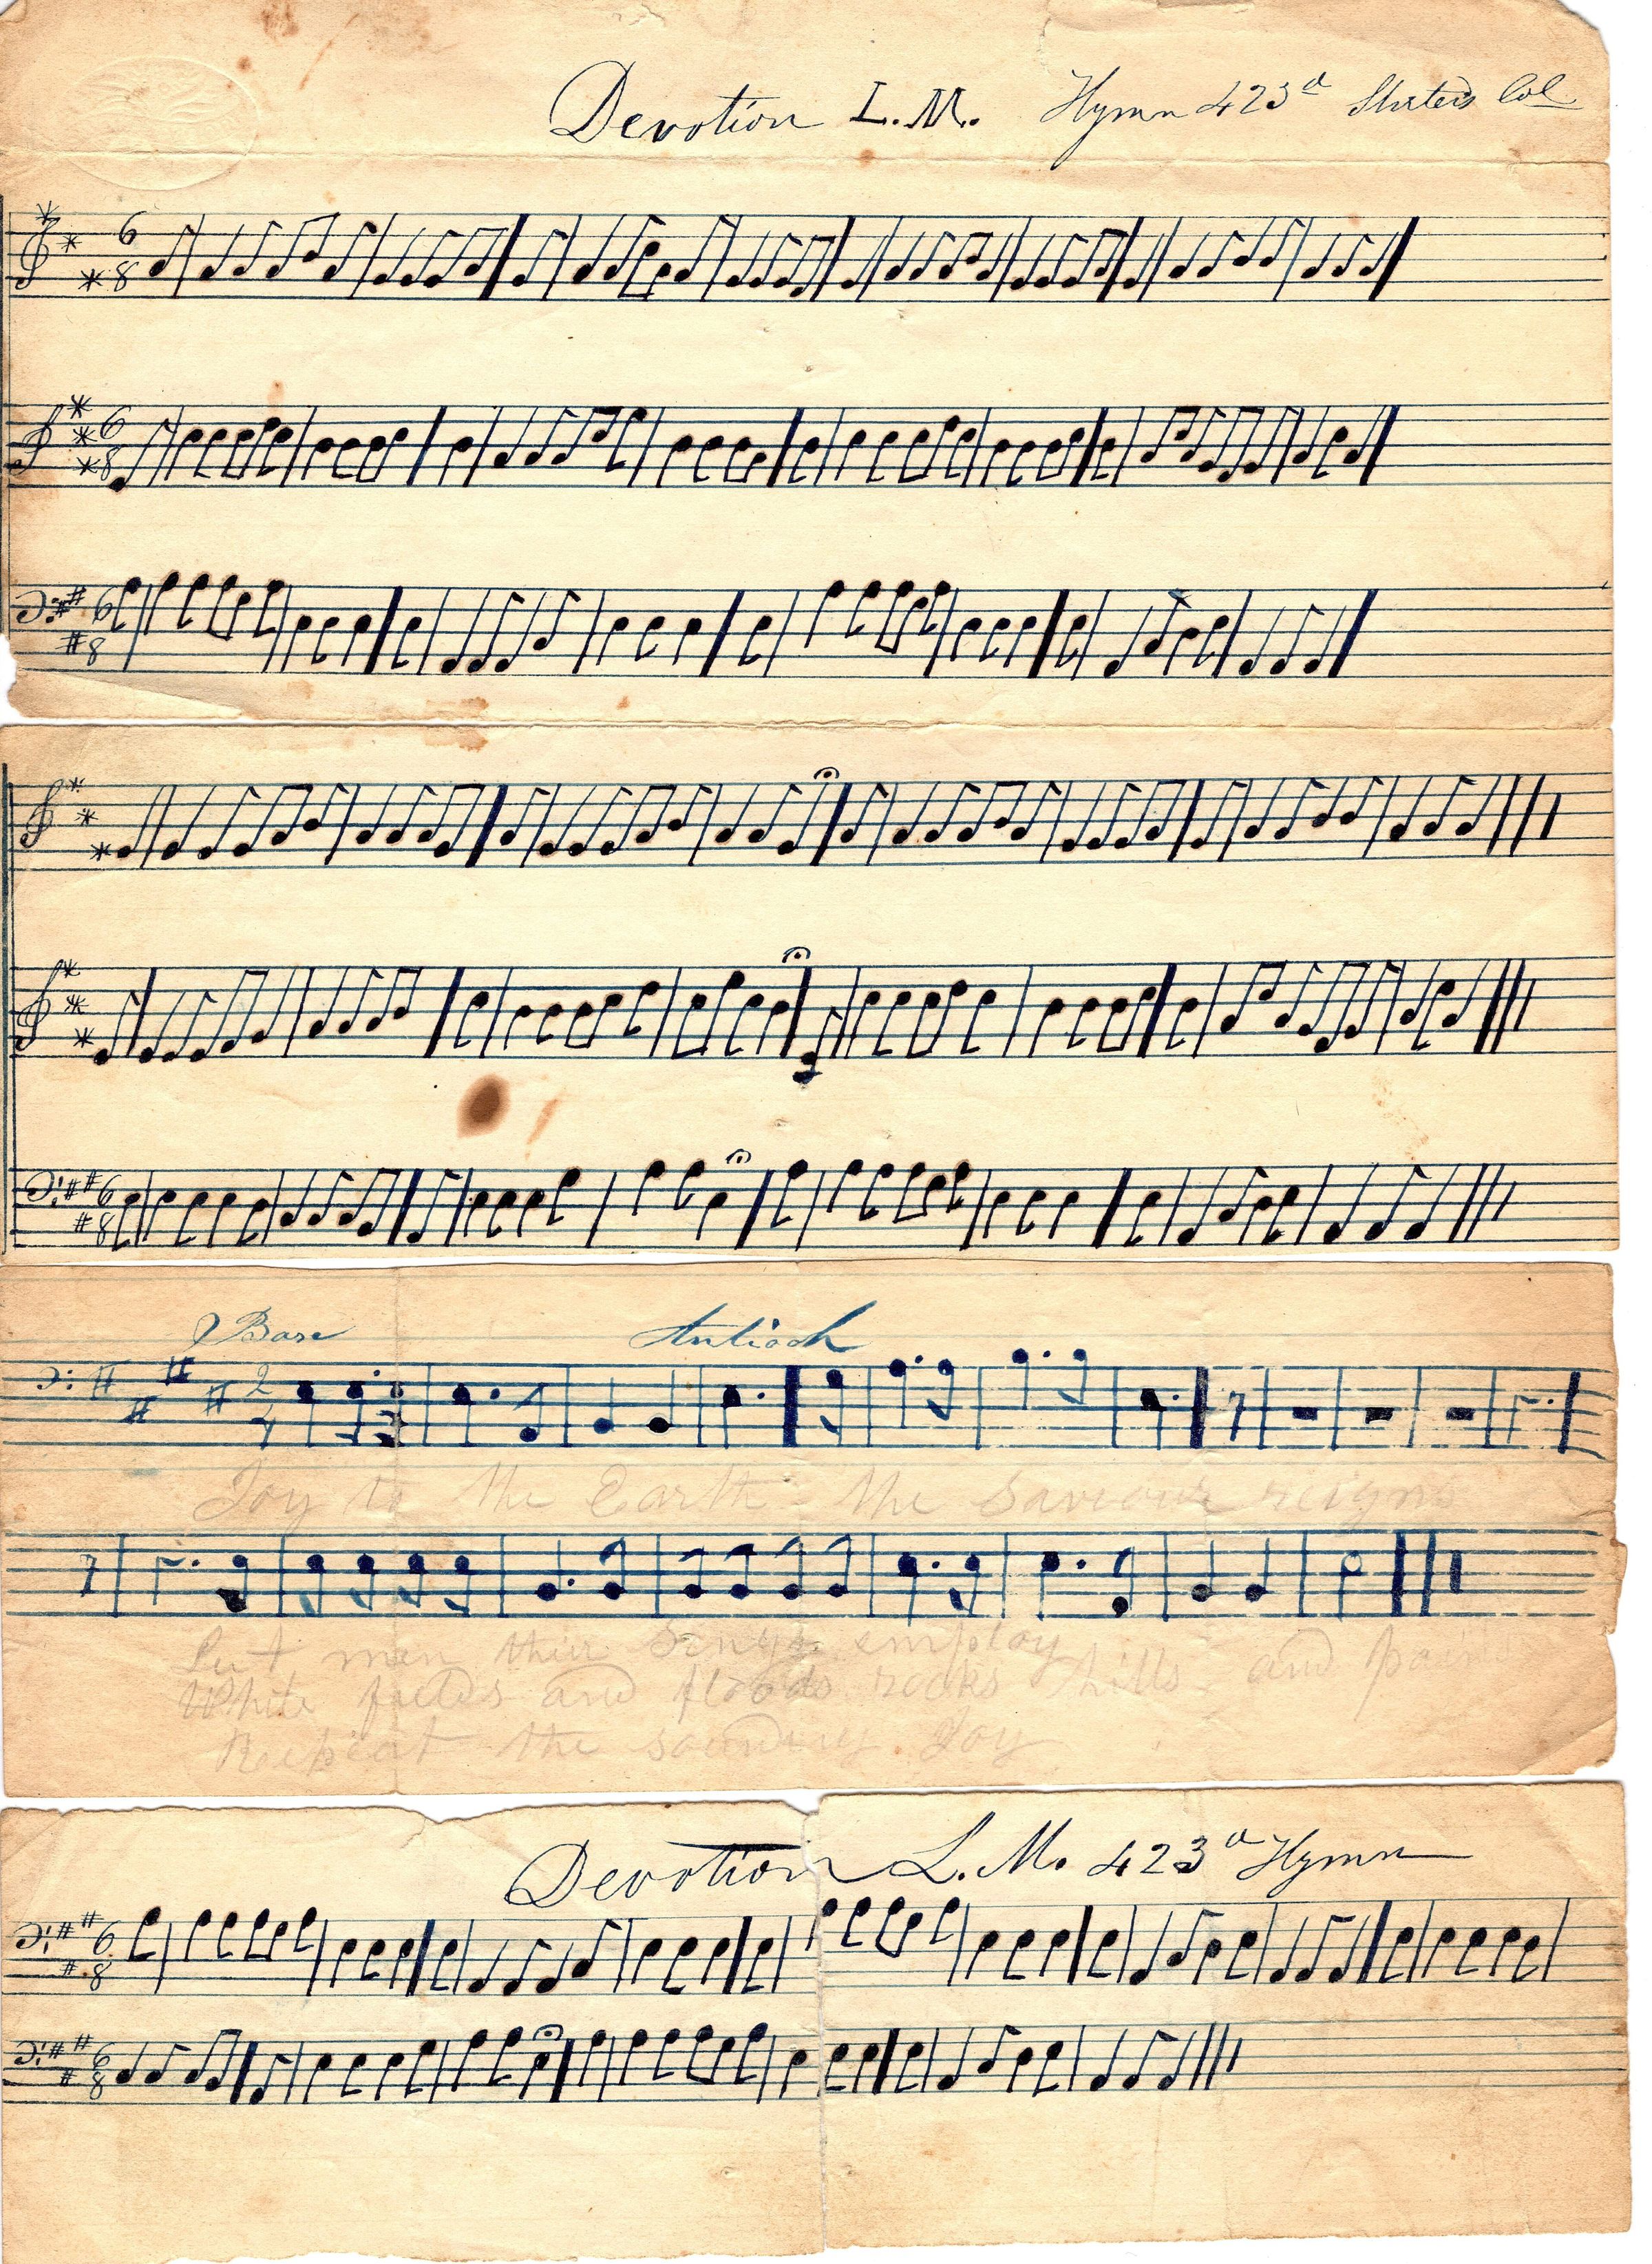 Devotion L.M. Hymn 423d Col
6
8
6
8
6
8
6
8
Base Antioch
2
4
Joy to the Earth the Saviour reigns
Let men their songs employ
While fields and floods rocks hills and
Repeat the sounding Joy
Devotion L.M. 423d Hymn
6
8
6
8